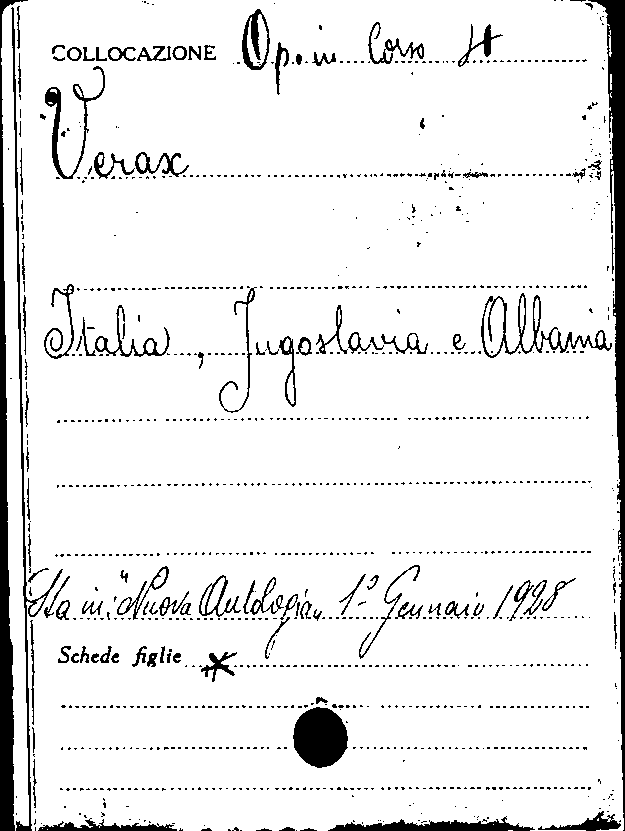 COLLOCAZIONE Op. in Corso
Verax
Italia, Jugoslavia e Albania
Sta in: "Nuova Antologia„ 1º Gennaio 1928
Schede figlie